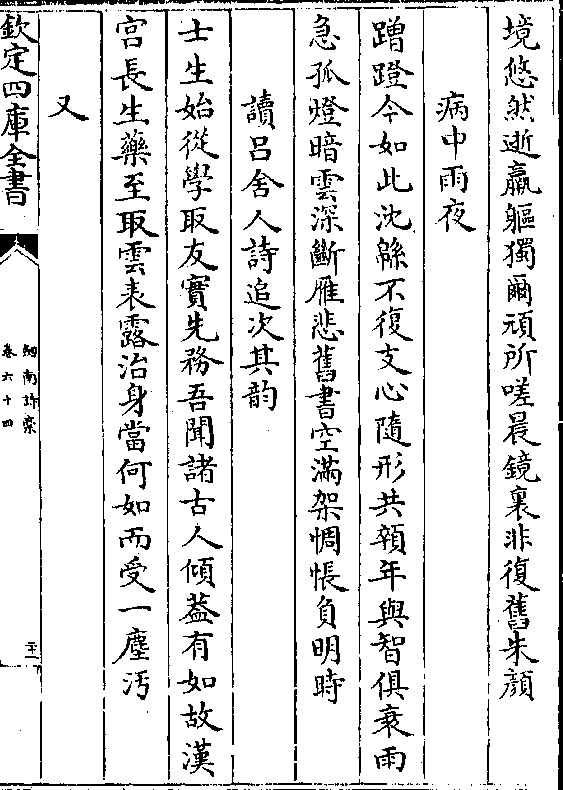 境悠然逝羸軀獨爾頑所嗟晨鏡裏非復舊朱顔
病中雨夜
蹭蹬今如此沈緜不復支心隨形共顇年與智俱衰雨
急孤燈暗雲深斷雁悲舊書空滿架惆悵負明時
讀呂舍人詩追次其韵
士生始從學取友實先務吾聞諸古人傾蓋有如故漢
宫長生藥至取雲表露治身當何如而受一塵汚
又
欽定四庫全書
劒南詩稾
卷六十四